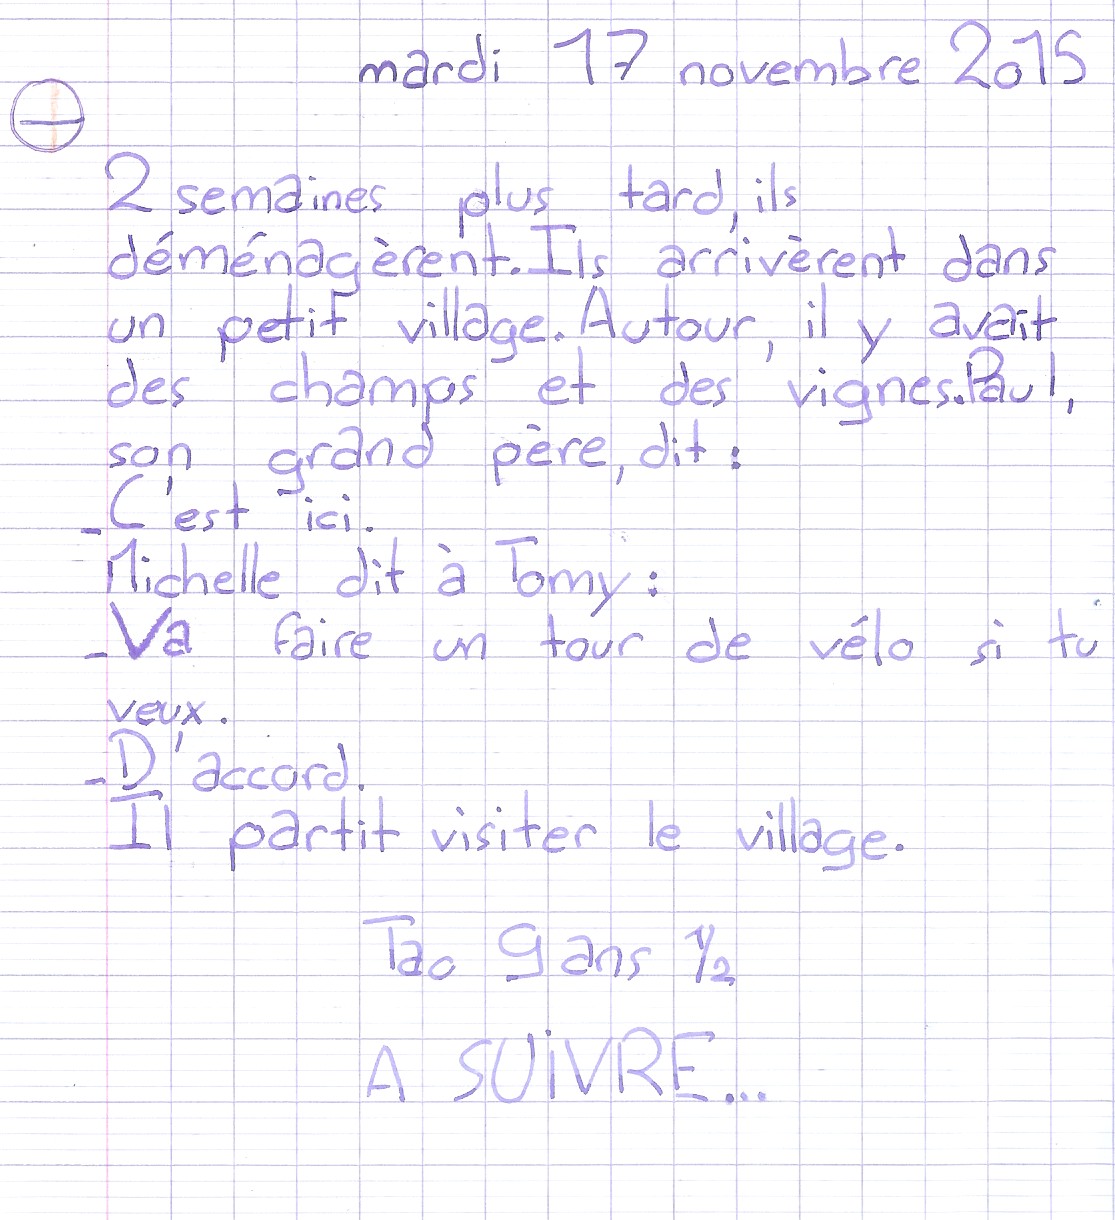 mardi 17 novembre 2015
2 semaines plus tard, ils
déménagèrent. Ils arrivèrent dans
un petit village. Autour, il y avait
des champs et des vignes. Paul,
son grand père, dit :
- C'est ici.
Michelle dit à Tomy :
- Va faire un tour de vélo si tu
veux.
- D'accord.
Il partit visiter le village.
Tao 9 ans 1/2
A SUiVRE...